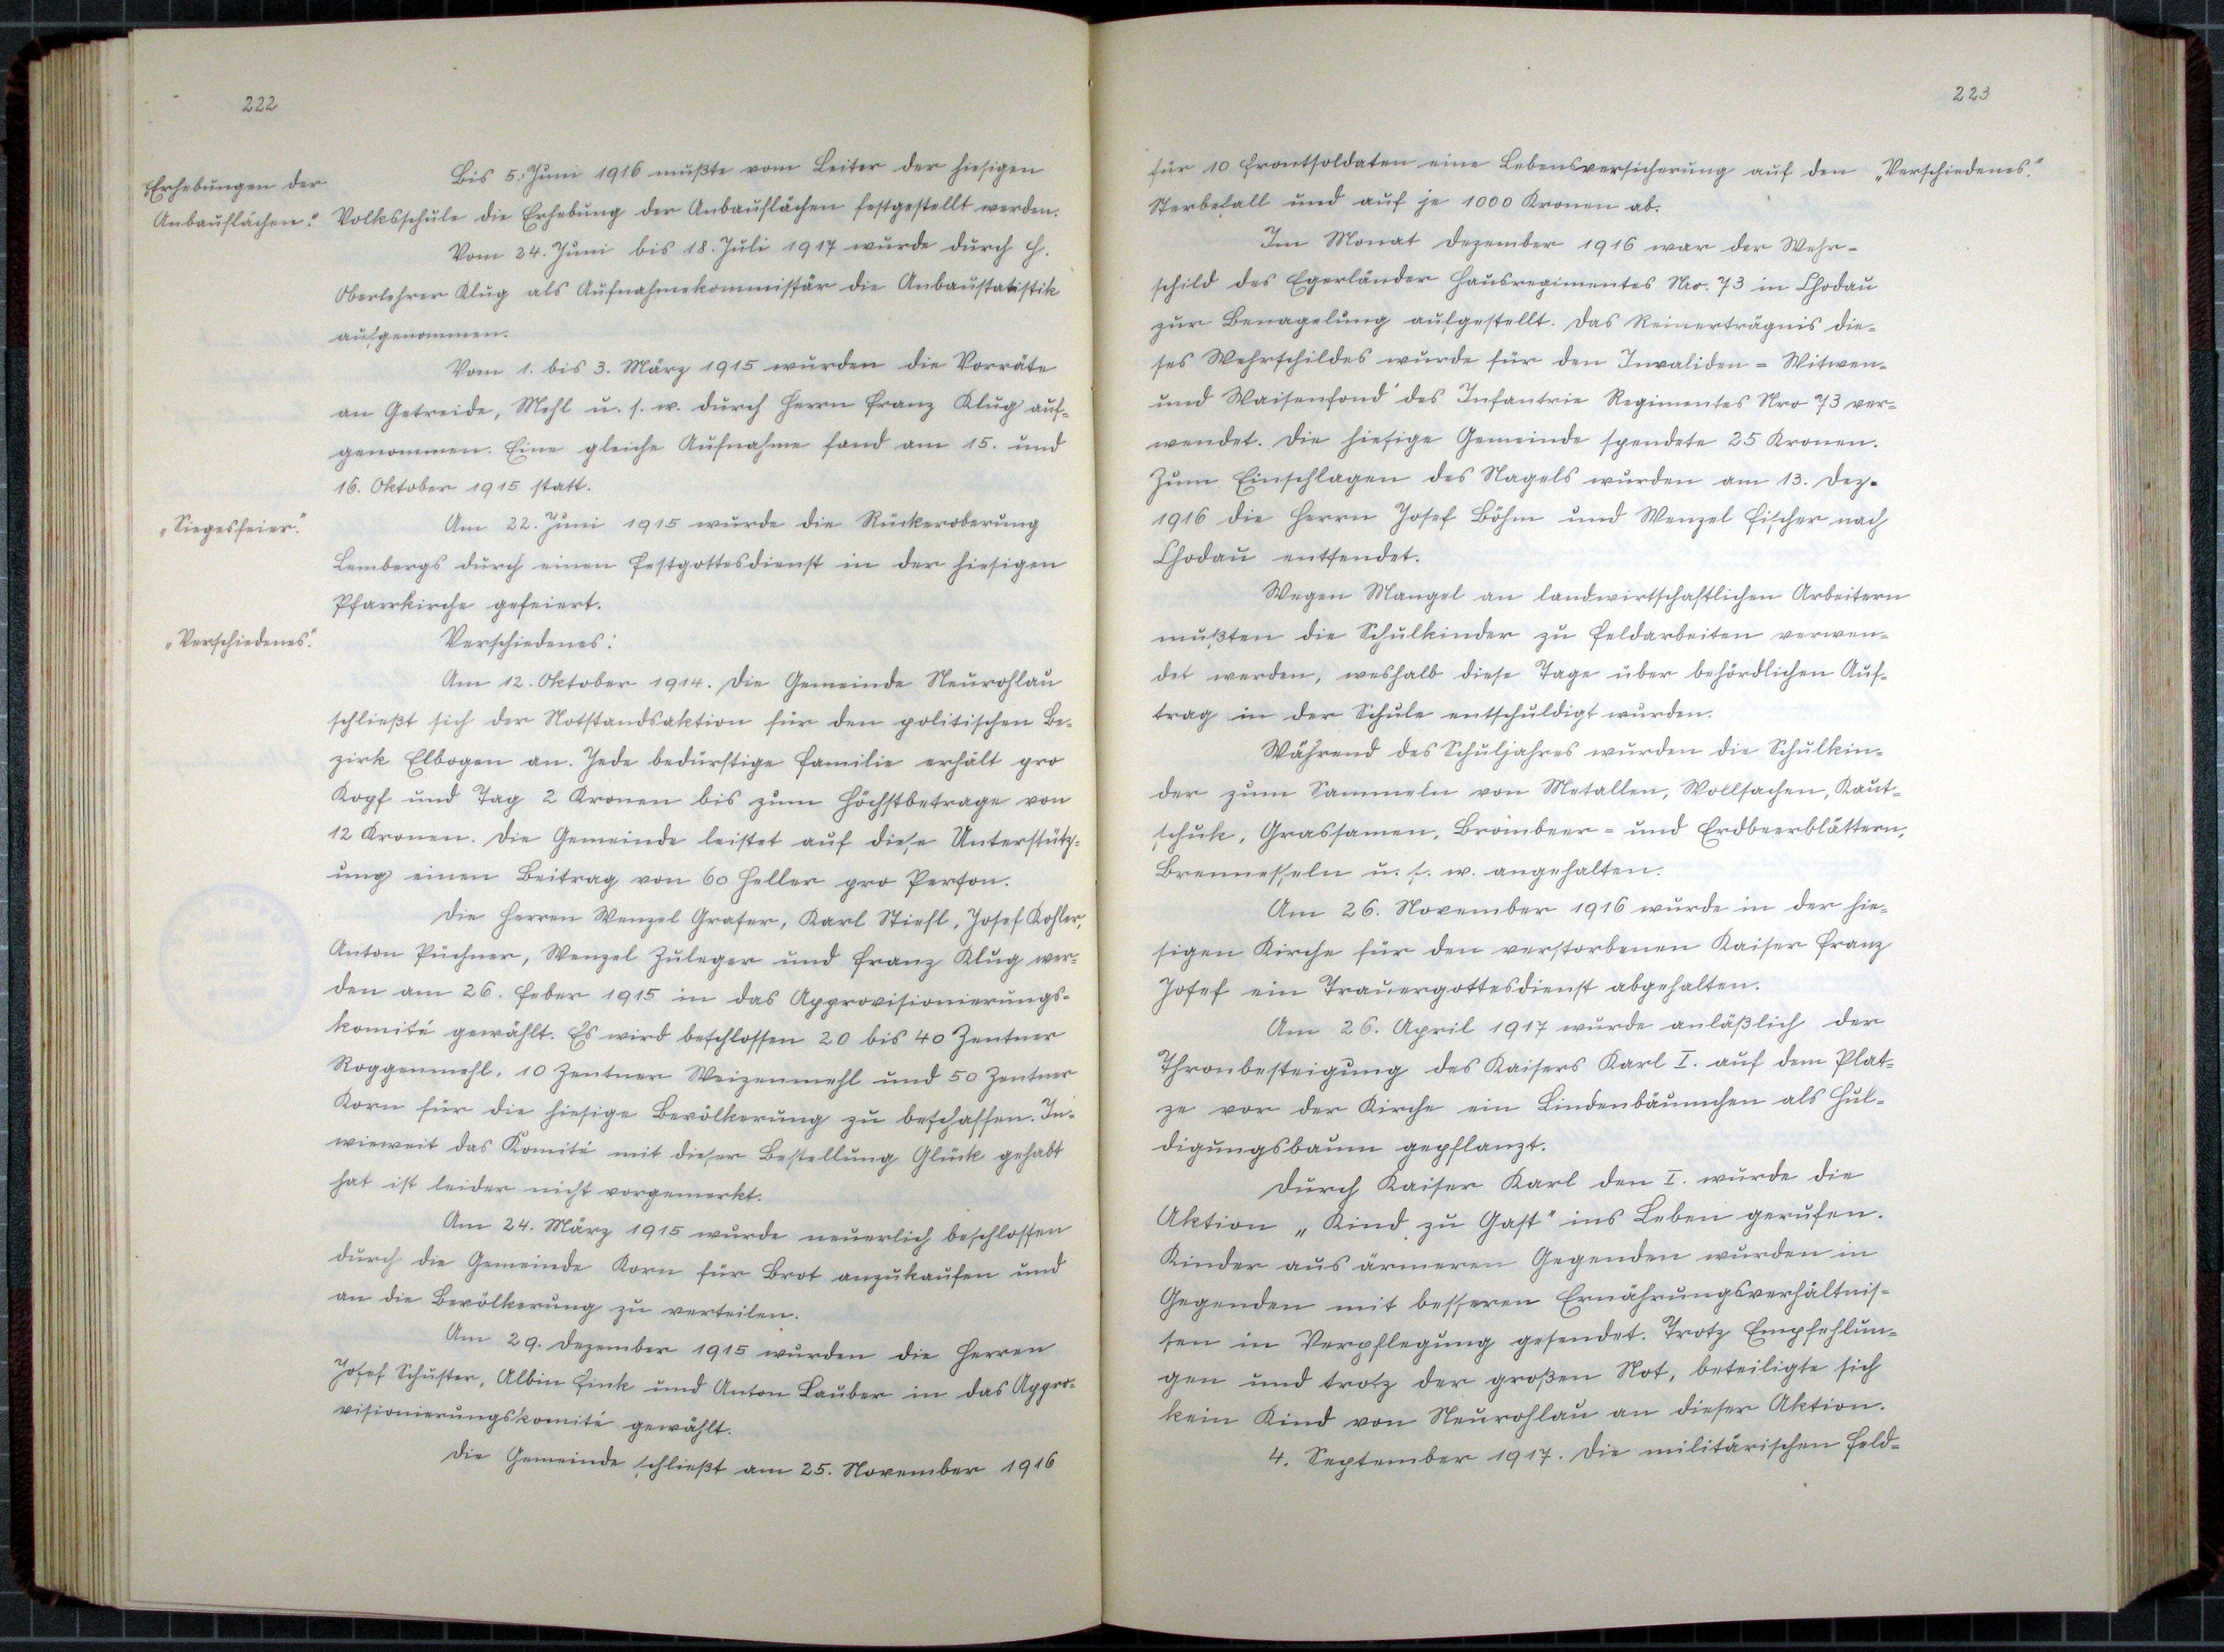 222
„Erhebungen der
Anbauflächen."
Bis 5. Juni 1916 mußte vom Leiter der hiesigen
Volksschule die Erhebung der Anbauflächen festgestellt werden.
Vom 24. Juni bis 18. Juli 1917 wurde durch H.
Oberlehrer Klug als Aufnahmekommissär die Anbaustatistik
aufgenommen.
Vom 1. bis 3. März 1915 wurden die Vorräte
an Getreide, Mehl u. s. w. durch Herrn Franz Klug auf-
genommen. Eine gleiche Aufnahme fand am 15. und
16. Oktober 1915 statt.
„Siegesfeier."
Am 22. Juni 1915 wurde die Rückeroberung
Lembergs durch einen Festgottesdienst in der hiesigen
Pfarrkirche gefeiert.
„Verschiedenes."
Verschiedenes:
Am 12. Oktober 1914. Die Gemeinde Neurohlau
schließt sich der Notstandsaktion für den politischen Be-
zirk Elbogen an. Jede bedürftige Familie erhält pro
Kopf und Tag 2 Kronen bis zum Höchstbetrage von
12 Kronen. Die Gemeinde leistet auf diese Unterstütz-
ung einen Beitrag von 60 Heller pro Person.
Die Herren Wenzel Grafer, Karl Stiefl, Josef Kohler,
Anton Püchner, Wenzel Zuleger und Franz Klug wer-
den am 26. Feber 1915 in das Approvisionierungs-
komité gewählt. Es wird beschlossen 20 bis 40 Zentner
Roggenmehl, 10 Zentner Weizenmehl und 50 Zentner
Korn für die hiesige Bevölkerung zu beschaffen. In-
wieweit das Komité mit dieser Bestellung Glück gehabt
hat ist leider nicht vorgemerkt.
Am 24. März 1915 wurde neuerlich beschlossen
durch die Gemeinde Korn für Brot anzukaufen und
an die Bevölkerung zu verteilen.
Am 29. Dezember 1915 wurden die Herren
Josef Schuster, Albin Fink und Anton Lauber in das Appro-
visionierungskomité gewählt.
Die Gemeinde schließt am 25. November 1916
223
für 10 Frontsoldaten eine Lebensversicherung auf den
„Verschiedenes."
Sterbefall und auf je 1000 Kronen ab.
Im Monat Dezember 1916 war der Wehr-
schild des Egerländer Hausregimentes Nro. 73 in Chodau
zur Benagelung aufgestellt. Das Reinerträgnis die-
ses Wehrschildes wurde für den Invaliden- Witwen-
und Waisenfond des Infantrie Regimentes Nro 73 ver-
wendet. Die hiesige Gemeinde spendete 25 Kronen.
Zum Einschlagen des Nagels wurden am 13. Dez.
1916 die Herrn Josef Böhm und Wenzel Fischer nach
Chodau entsendet.
Wegen Mangel an landwirtschaftlichen Arbeitern
mußten die Schulkinder zu Feldarbeiten verwen-
det werden, weshalb diese Tage über behördlichen Auf-
trag in der Schule entschuldigt wurden.
Während des Schuljahres wurden die Schulkin-
der zum Sammeln von Metallen, Wollsachen, Kaut-
schuk, Grassamen, Brombeer- und Erdbeerblättern,
Brennesseln u. s. w. angehalten.
Am 26. November 1916 wurde in der hie-
sigen Kirche für den verstorbenen Kaiser Franz
Josef ein Trauergottesdienst abgehalten.
Am 26. April 1917 wurde anläßlich der
Thronbesteigung des Kaisers Karl I. auf dem Plat-
ze vor der Kirche ein Lindenbäumchen als Hul-
digungsbaum gepflanzt.
Durch Kaiser Karl den I. wurde die
Aktion „Kind zu Gast" ins Leben gerufen.
Kinder aus ärmeren Gegenden wurden in
Gegenden mit besseren Ernährungsverhältnis-
sen in Verpflegung gesendet. Trotz Empfehlun-
gen und trotz der großen Not, beteiligte sich
kein Kind von Neurohlau an dieser Aktion.
4. September 1917. Die militärischen Feld-